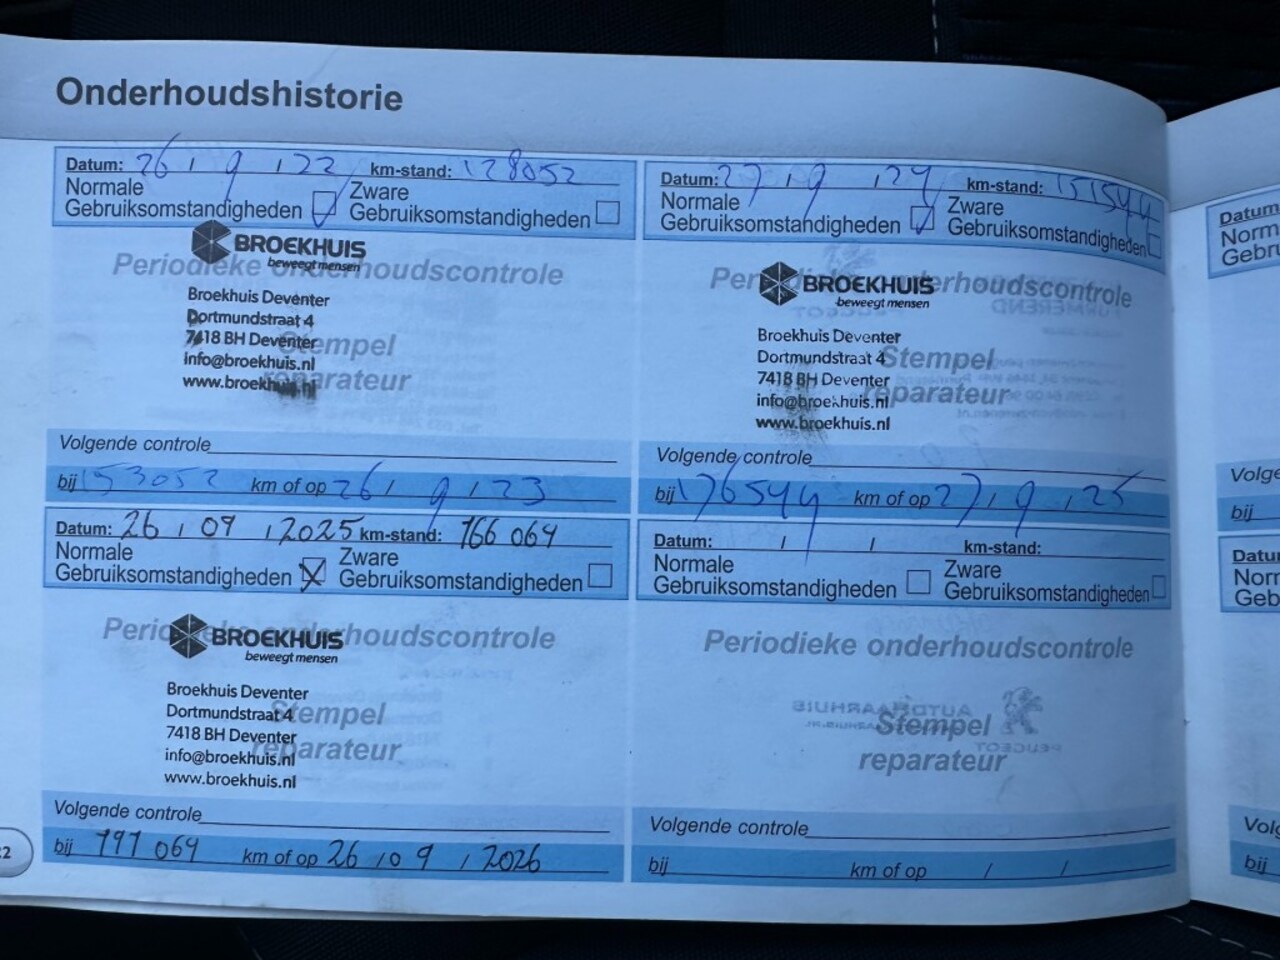 Onderhoudshistorie
Datum: 26 / 9 / 22 km-stand: 128052
Normale Gebruiksomstandigheden
Zware Gebruiksomstandigheden
BROEKHUIS
beweegt mensen
Periodieke onderhoudscontrole
Broekhuis Deventer
Dortmundstraat 4
7418 BH Deventer
info@broekhuis.nl
www.broekhuis.nl
Stempel
reparateur
Volgende controle
bij 153052 km of op 26 / 9 / 23
Datum: 27 / 9 / 24 km-stand: 151544
Normale Gebruiksomstandigheden
Zware Gebruiksomstandigheden
BROEKHUIS
beweegt mensen
Periodieke onderhoudscontrole
Broekhuis Deventer
Dortmundstraat 4
7418 BH Deventer
info@broekhuis.nl
www.broekhuis.nl
Stempel
reparateur
Volgende controle
bij 176544 km of op 27 / 9 / 25
Datum: 26 / 09 / 2025 km-stand: 166 064
Normale Gebruiksomstandigheden
Zware Gebruiksomstandigheden
BROEKHUIS
beweegt mensen
Periodieke onderhoudscontrole
Broekhuis Deventer
Dortmundstraat 4
7418 BH Deventer
info@broekhuis.nl
www.broekhuis.nl
Stempel
reparateur
Volgende controle
bij 191 064 km of op 26 / 09 / 2026
Datum: / / km-stand:
Normale Gebruiksomstandigheden
Zware Gebruiksomstandigheden
Periodieke onderhoudscontrole
Stempel
reparateur
Volgende controle
bij km of op / /
Datum
Norm
Gebru
Volge
bij
Datu
Norr
Geb
Vol
bij